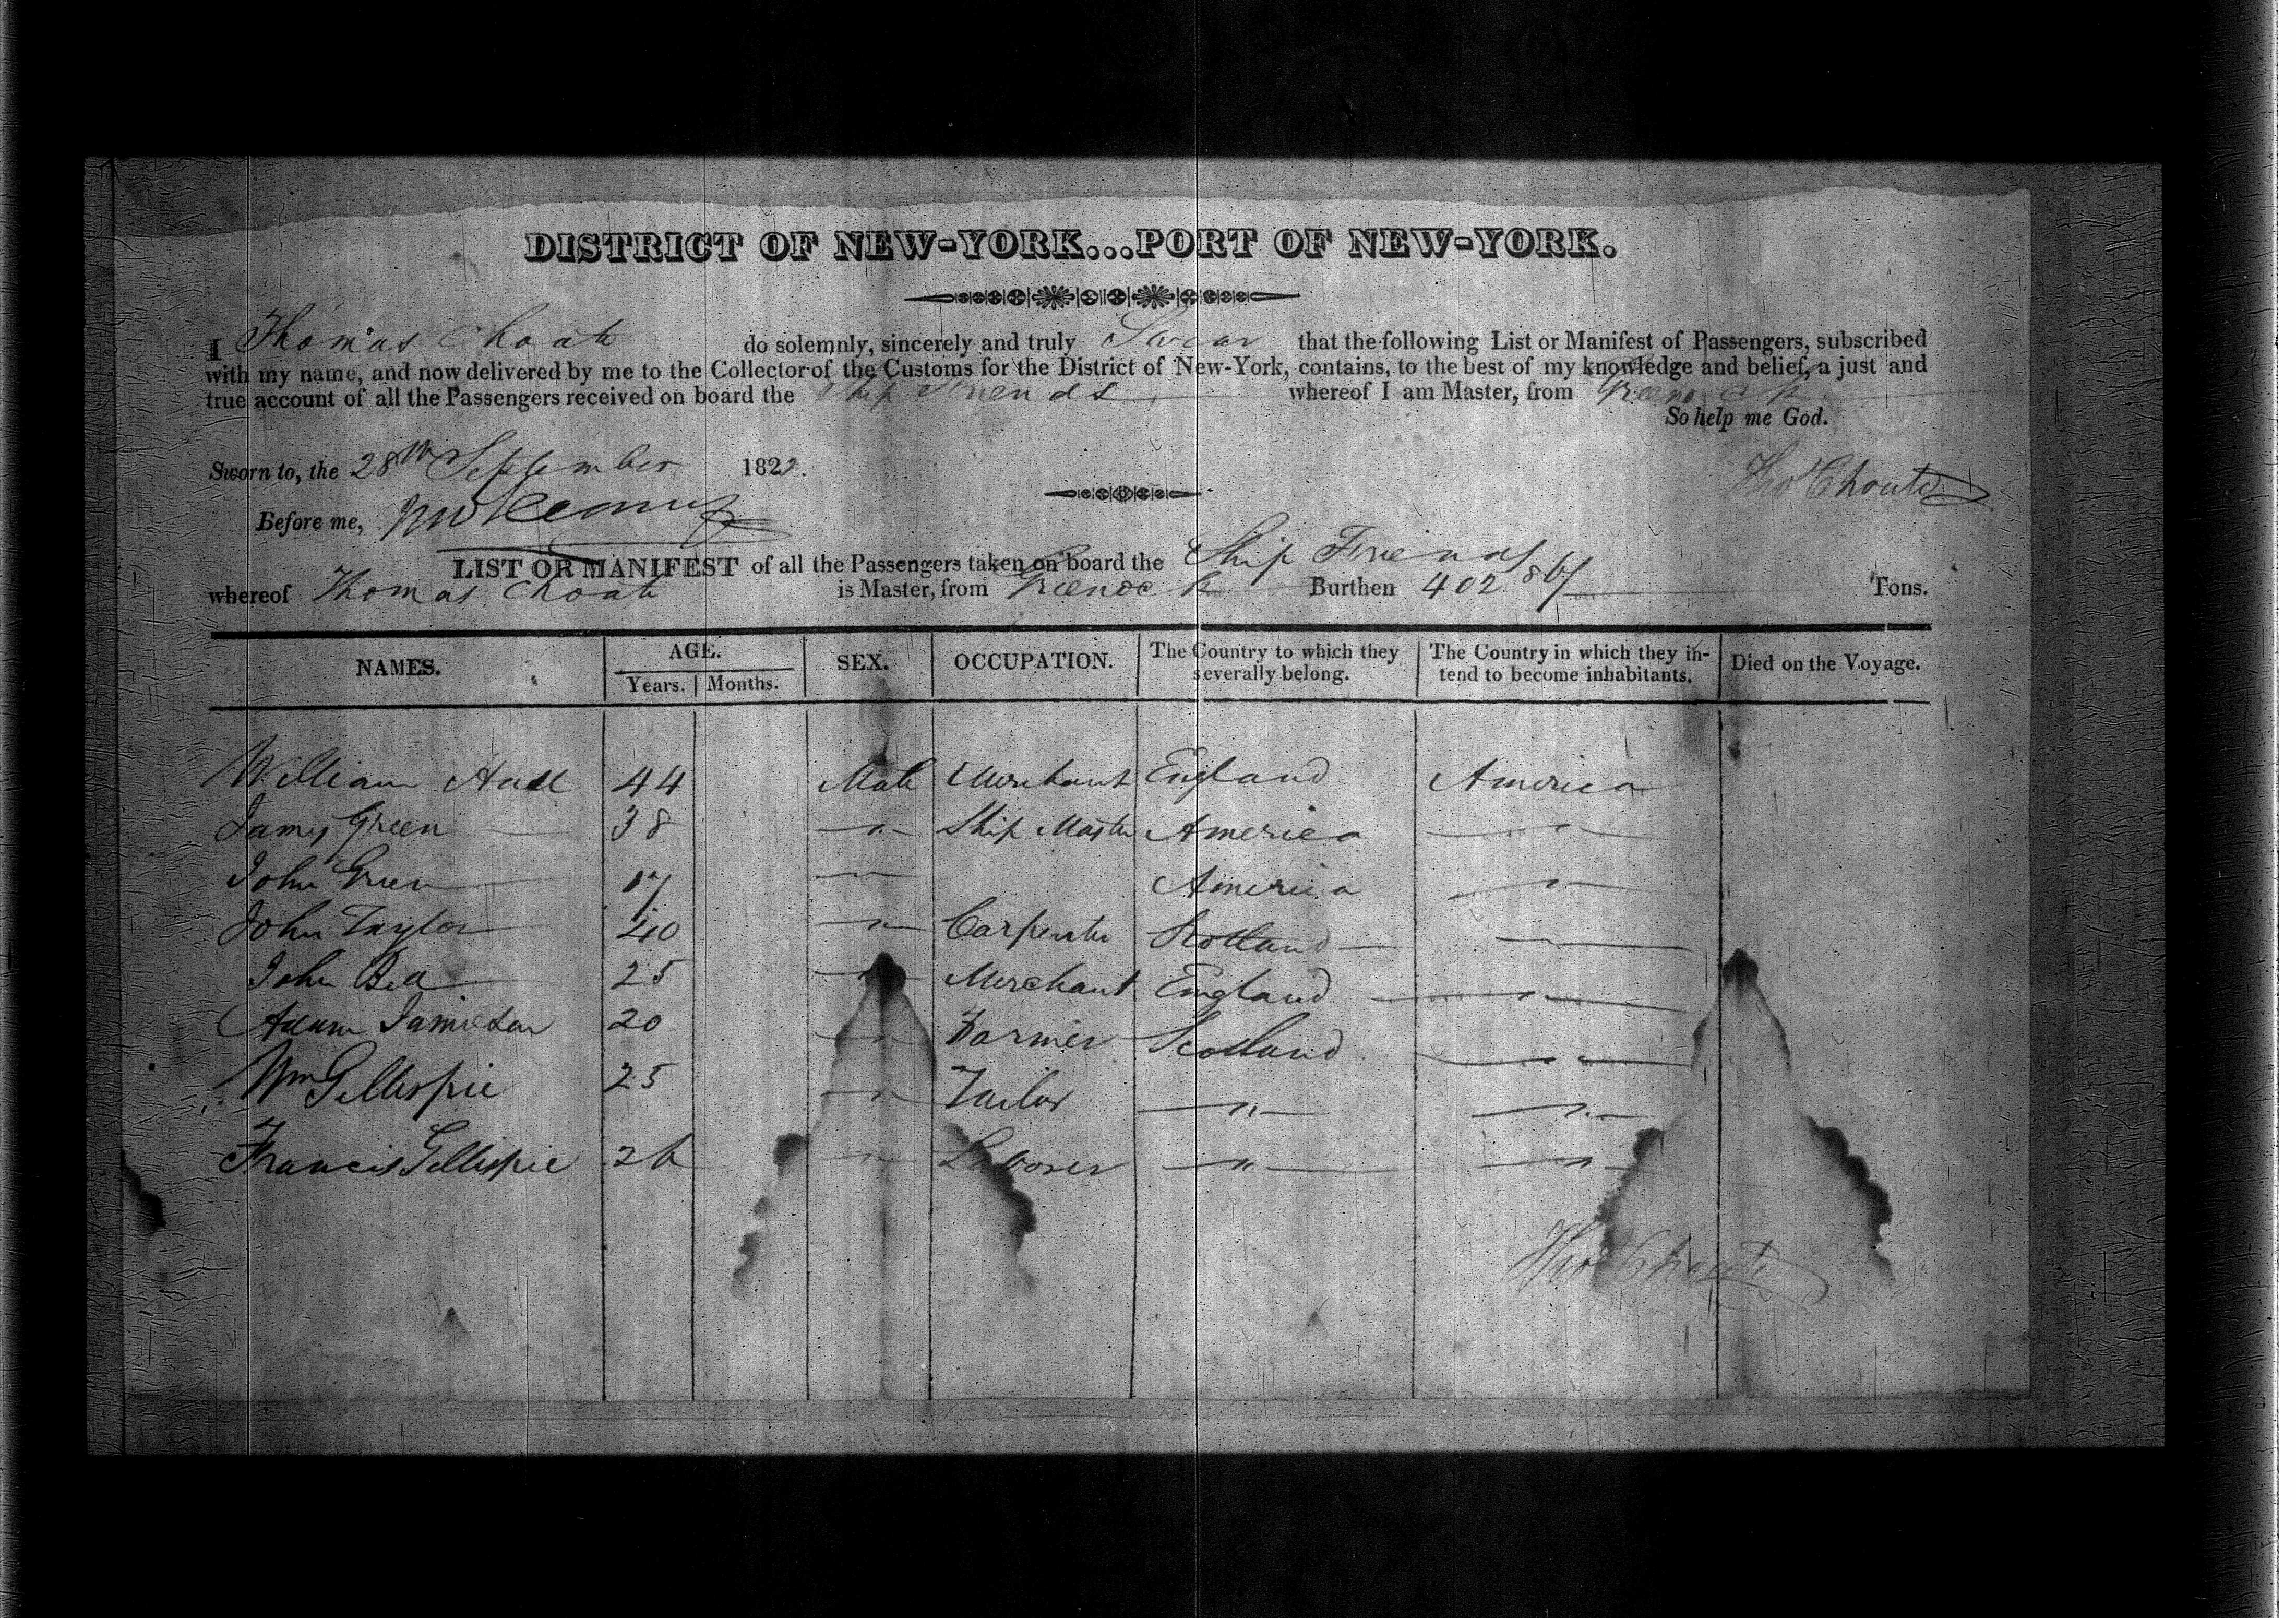 DISTRICT OF NEW-YORK...PORT OF NEW-YORK.
I Thomas Choate do solemnly, sincerely and truly Swear that the following List or Manifest of Passengers, subscribed
with my name, and now delivered by me to the Collector of the Customs for the District of New-York, contains, to the best of my knowledge and belief, a just and
true account of all the Passengers received on board the Ship Friends whereof I am Master, from Greenock
So help me God.
Sworn to, the 28th September 1822.
Thos Choate
Before me,
LIST OR MANIFEST of all the Passengers taken on board the Ship Friends
whereof Thomas Choate is Master, from Greenock Burthen 402 Tons.
NAMES. AGE. SEX. OCCUPATION. The Country to which they severally belong. The Country in which they intend to become inhabitants. Died on the Voyage.
Years. Months.
William 44 Male Merchant England America
James Green 38 " Ship Master America "
John Green 17 " America "
John Taylor 40 " Carpenter Scotland
John Bell 25 " Merchant England "
Adam Jamieson 20 " Farmer Scotland "
Wm Gillespie 25 " Tailor " "
Francis Gillespie 26 " Laborer " "
Thos Choate